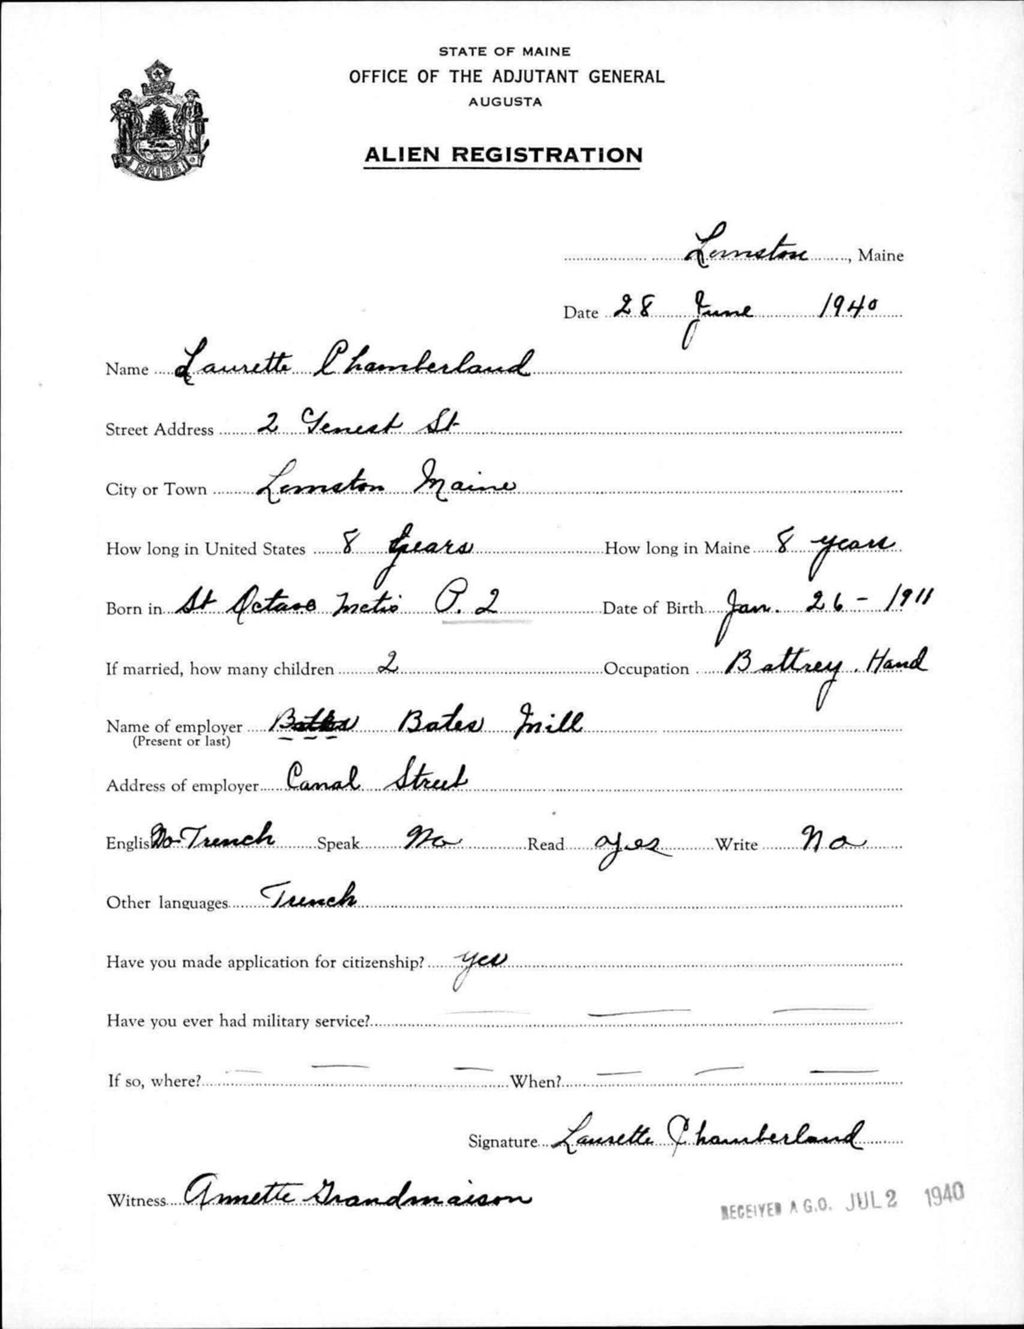 STATE OF MAINE
OFFICE OF THE ADJUTANT GENERAL
AUGUSTA
ALIEN REGISTRATION
MAINE
Lewiston, Maine
Date 28 June 1940
Name Laurette Chamberland
Street Address 2 Genest St
City or Town Lewiston Maine
How long in United States 8 years How long in Maine 8 years
Born in St Octave Metis P. 2 Date of Birth Jan. 26 - 1911
If married, how many children 2 Occupation Battrey. Hand
Name of employer Bates Mill
(Present or last)
Address of employer Canal Street
English No-French Speak No Read yes Write No
Other languages French
Have you made application for citizenship? yes
Have you ever had military service? — — —
If so, where? — — — When? — — —
Signature Laurette Chamberland
Witness Annette Grandmaison
RECEIVED A.G.O. JUL 2 1940